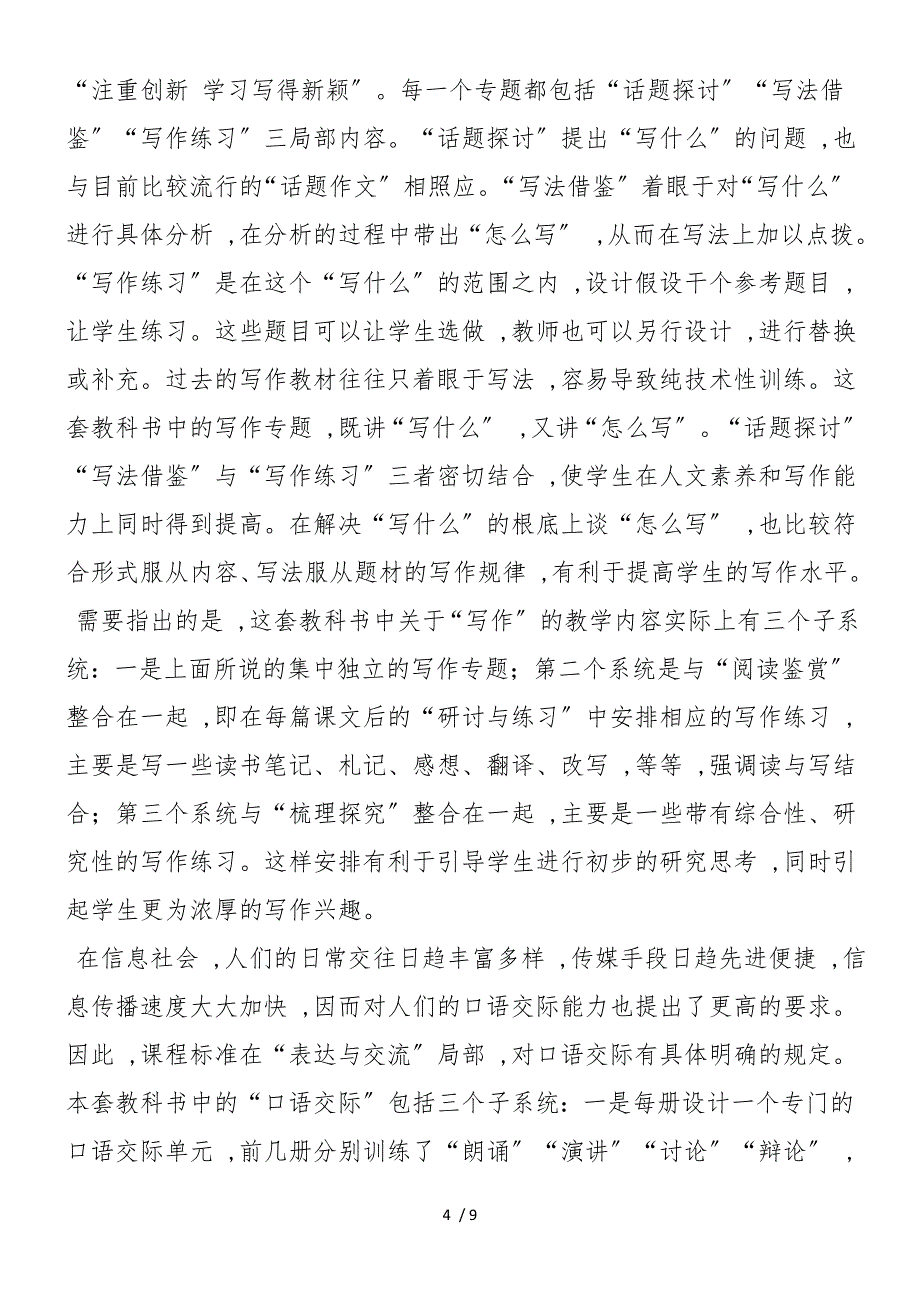 “注重创新 学习写得新颖〞。每一个专题都包括“话题探讨〞“写法借
鉴〞“写作练习〞三局部内容。“话题探讨〞提出“写什么〞的问题 ,也
与目前比较流行的“话题作文〞相照应。“写法借鉴〞着眼于对“写什么〞
进行具体分析 ,在分析的过程中带出“怎么写〞 ,从而在写法上加以点拨。
“写作练习〞是在这个“写什么〞的范围之内 ,设计假设干个参考题目 ,
让学生练习。这些题目可以让学生选做 ,教师也可以另行设计 ,进行替换
或补充。过去的写作教材往往只着眼于写法 ,容易导致纯技术性训练。这
套教科书中的写作专题 ,既讲“写什么〞 ,又讲“怎么写〞。“话题探讨〞
“写法借鉴〞与“写作练习〞三者密切结合 ,使学生在人文素养和写作能
力上同时得到提高。在解决“写什么〞的根底上谈“怎么写〞 ,也比较符
合形式服从内容、写法服从题材的写作规律 ,有利于提高学生的写作水平。
需要指出的是 ,这套教科书中关于“写作〞的教学内容实际上有三个子系
统：一是上面所说的集中独立的写作专题；第二个系统是与“阅读鉴赏〞
整合在一起 ,即在每篇课文后的“研讨与练习〞中安排相应的写作练习 ,
主要是写一些读书笔记、札记、感想、翻译、改写 ,等等 ,强调读与写结
合；第三个系统与“梳理探究〞整合在一起 ,主要是一些带有综合性、研
究性的写作练习。这样安排有利于引导学生进行初步的研究思考 ,同时引
起学生更为浓厚的写作兴趣。
在信息社会 ,人们的日常交往日趋丰富多样 ,传媒手段日趋先进便捷 ,信
息传播速度大大加快 ,因而对人们的口语交际能力也提出了更高的要求。
因此 ,课程标准在“表达与交流〞局部 ,对口语交际有具体明确的规定。
本套教科书中的“口语交际〞包括三个子系统：一是每册设计一个专门的
口语交际单元 ,前几册分别训练了“朗诵〞“演讲〞“讨论〞“辩论〞 ,
4 / 9